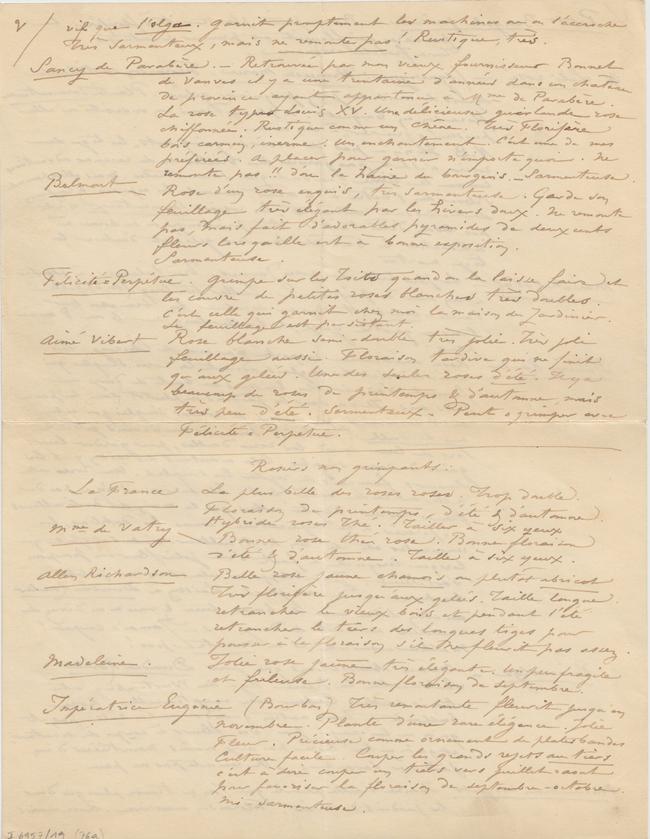 2/ vif que l'olga. Garnit promptement les machines où on s'accroche
Très sarmenteux, mais ne remonte pas! Rustique, très.
Sancy de Parabère. – Retrouvée par mon vieux fournisseur Bonnet
de Vanves il y a une trentaine d'années dans un chateau
de province ayant appartenu à Mme de Parabère.
La rose type Louis XV. Une délicieuse guirlande rose
chiffonnée. Rustique comme un chêne. Très florifère
bois carmin, inerme. Un enchantement. C'est une de mes
préférées. A placer pour garnir n'importe quoi. Ne
remonte pas!! dou la haine du bourgeois. – Sarmenteuse.
Belmont Rose d'un rose exquis, très sarmenteuse. Garde son
feuillage très élégant par les hivers doux. Ne remonte
pas, mais fait d'adorables pyramides de deux cents
fleurs lorsqu'elle est à bonne exposition.
Sarmenteuse.
Félicité-Perpétue. Grimpe sur les toits quand on la laisse faire et
les couvre de petites roses blanches très doubles.
C'est celle qui garnit chez moi la maison du Jardinier.
Le feuillage est persistant.
Aimé Vibert Rose blanche semi-double très jolie. Très joli
feuillage aussi. Floraison tardive qui ne finit
qu'aux gelées. Une des seules roses d'été. Il y a
beaucoup de roses de printemps & d'automne, mais
très peu d'été. Sarmenteux – Peut grimper avec
Félicité-Perpétue.
Rosiers non grimpants.
La France La plus belle des roses roses. Trop double.
Floraison de printemps, d'été & d'automne.
Hybride roses Thé. Tailler à six yeux
Mme de Vatry – Bonne rose thé rose. Bonne floraison
d'été & d'automne. Taille à six yeux.
Allen Richardson Belle rose jaune chamois ou plutot abricot
Très florifère jusqu'aux gelées. Taille longue.
retrancher le vieux bois et pendant l'été
retrancher le tiers des longues tiges pour
pousser à la floraison s'il ne fleurit pas assez.
Madeleine. Jolie rose jaune très élégante. Un peu fragile
et frileuse. Bonne floraison de septembre.
Impératrice Eugénie (Bourbon) Très remontante fleurit jusqu'en
novembre. Plante d'une rare élégance. Jolie
fleur. Précieuse comme ornement de plates bandes
Culture facile. Couper les grands rejets au tiers
c'est à dire couper un tiers vers juillet-août
pour favoriser la floraison de septembre-octobre.
mi-sarmenteuse.
I 6957/19 (76a)